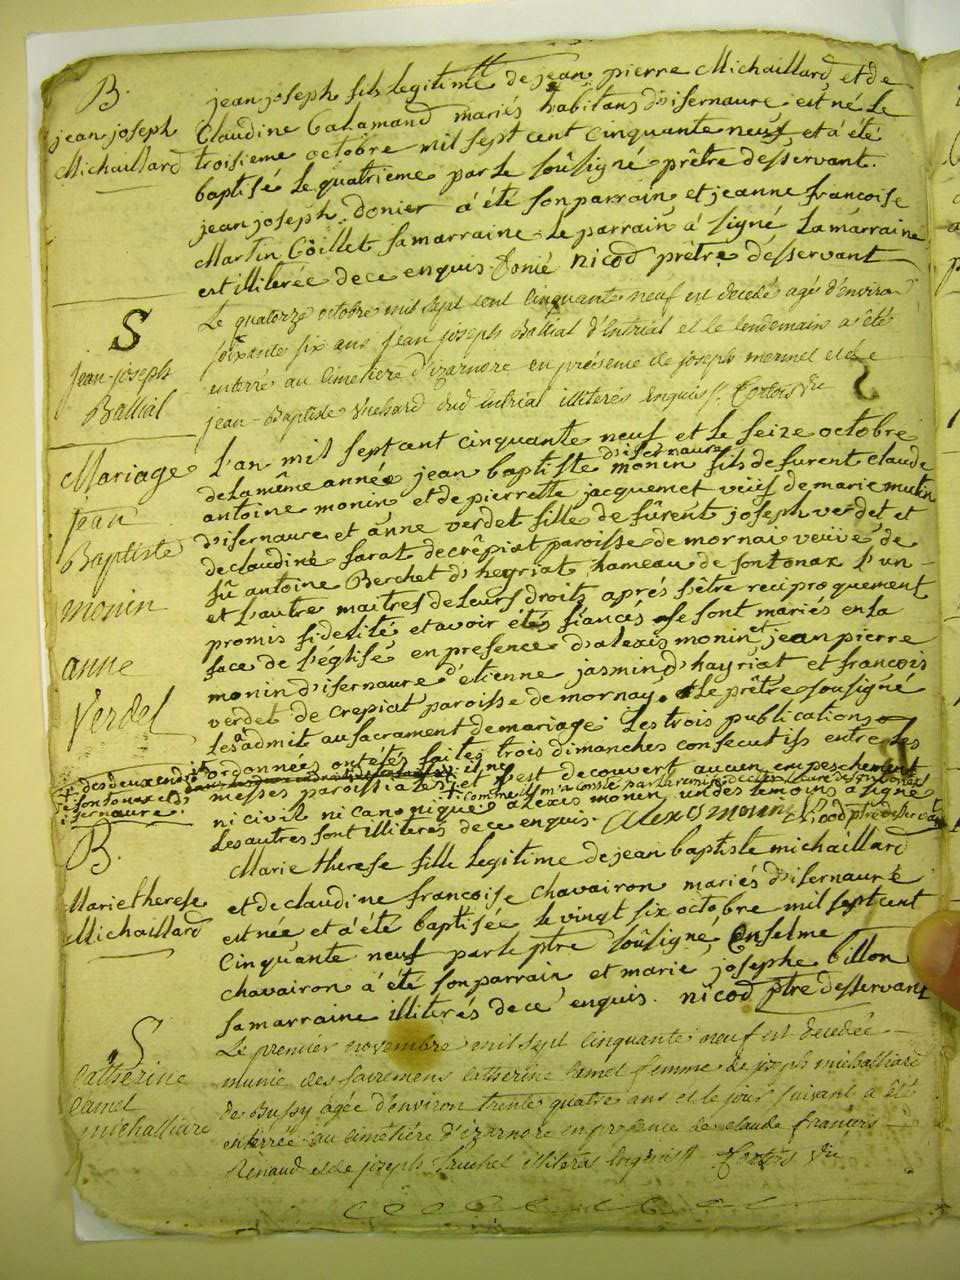 B.
jean joseph
Michaillard
jean joseph fils legitime de jean pierre Michaillard et de
Claudine Calamand mariés habitans d'isernaure est né le
troisieme octobre mil sept cent cinquante neuf et à été
baptisé le quatrieme par le soûsigné prêtre desservant.
jean joseph donier à été son parrain et jeanne francoise
Martin Goillet sa marraine le parrain à signé la marraine
est illiterée de ce enquis. Donié nicod prêtre desservant
S
Jean-joseph
Ballial
Le quatorze octobre mil sept cent cinquante neuf est decedé agé d'environ
soixante six ans jean joseph Ballial d'intriat et le lendemain a été
enterré au cimetiere d'izarnore en présence de joseph mermet et de
jean-Baptiste dud intriat illiterés enquis
Mariage
Jean
Baptiste
monin
anne
Verdet
L'an mil sept cent cinquante neuf et le seize octobre
de la même année jean baptiste monin d'isernaure fils de furent claude
antoine monin et de pierrette jacquemet veüf de marie mutin
d'isernaure et anne verdet fille de fûrent joseph verdet et
de claudine farat de crêpiat paroisse de mornai veüve de
fû antoine Berchet d'heyriat hameau de fontonax l'un
et l'autre maitres de leurs droits aprés s'être reciproquement
promis fidelité et avoir etés fiancés se sont mariés en la
face de l'église en presence d'alexis monin et jean pierre
monin d'isernaure d'etienne jasmin d'hayriat et francois
verdet de crepiat paroisse de mornay. Le prêtre soûsigné
les a admit au sacrament de mariage. Les trois publications
ordonnées ont étés faites trois dimanches consecutifs entre les
des deux endroits
de fontonax et d'
isernaure.
messes paroissiales et il ne s'est decouvert aucun empeschement
ni civil ni canonique alexis monin un des temoins à signé
les autres sont illiterés de ce enquis. Alexis monin Nicod ptre desservant
B.
Marie therese
Michaillard
Marie therese fille legitime de jean baptiste michaillard
et de claudine francoise chavairon mariés d'isernaure
est née et à été baptisée le vingt six octobre mil sept cent
cinquante neuf par le ptre soûsigné, Enselme
chavairon à été son parrain et marie josephe billon
sa marraine illiterés de ce enquis. nicod ptre desservant
S
Catherine
Camel
michalliard
Le premier novembre mil sept cinquante neuf est decedée
munie des sacremens catherine Camel femme de joseph michalliard
de Bussy agée d'environ trente quatre ans et le jour suivant a été
enterrée au cimetiére d'izarnore en presence de claude francois
Renaud et de joseph illiterés enquis